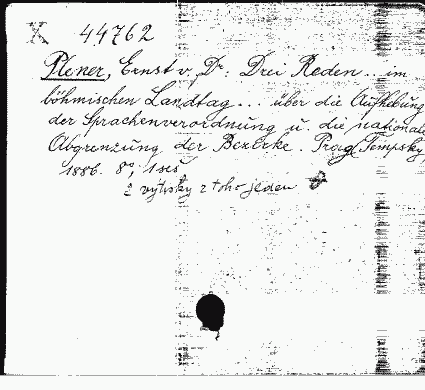 X 44762
Plener, Ernst v. Dr: Drei Reden... im
böhmischen Landtag... über die Aufhebung
der Sprachenverordnung u. die nationale
Abgrenzung der Bezirke. Prag, Tempsky,
1886. 8°, 1 seš
2 výtisky z toho jeden